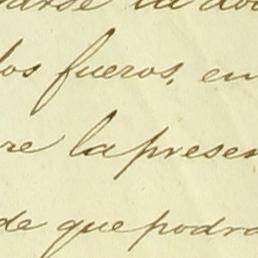 los fueros, en
re la presen
de que podra